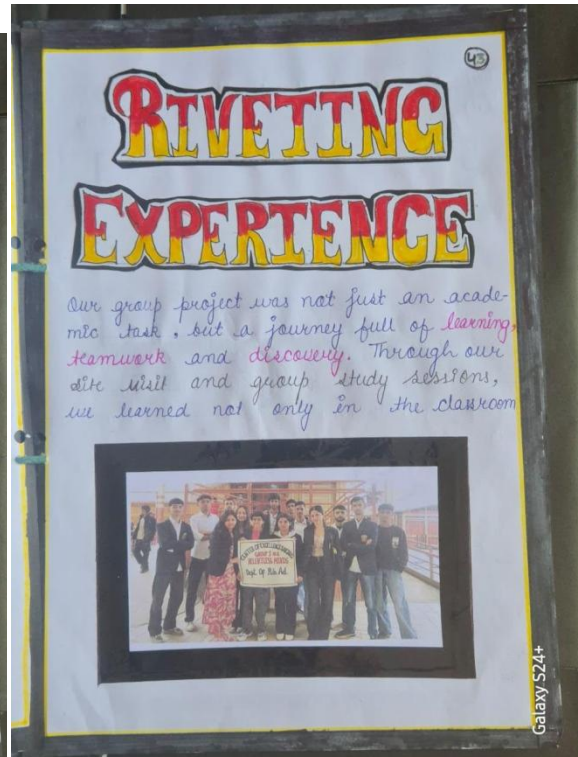 43
RIVETING
EXPERIENCE
Our group project was not just an acade-
mic task, but a journey full of learning,
teamwork and discovery. Through our
site visit and group study sessions,
we learned not only in the classroom
GROUP 2
Dept. Of Pub. Ad.
Galaxy S24+